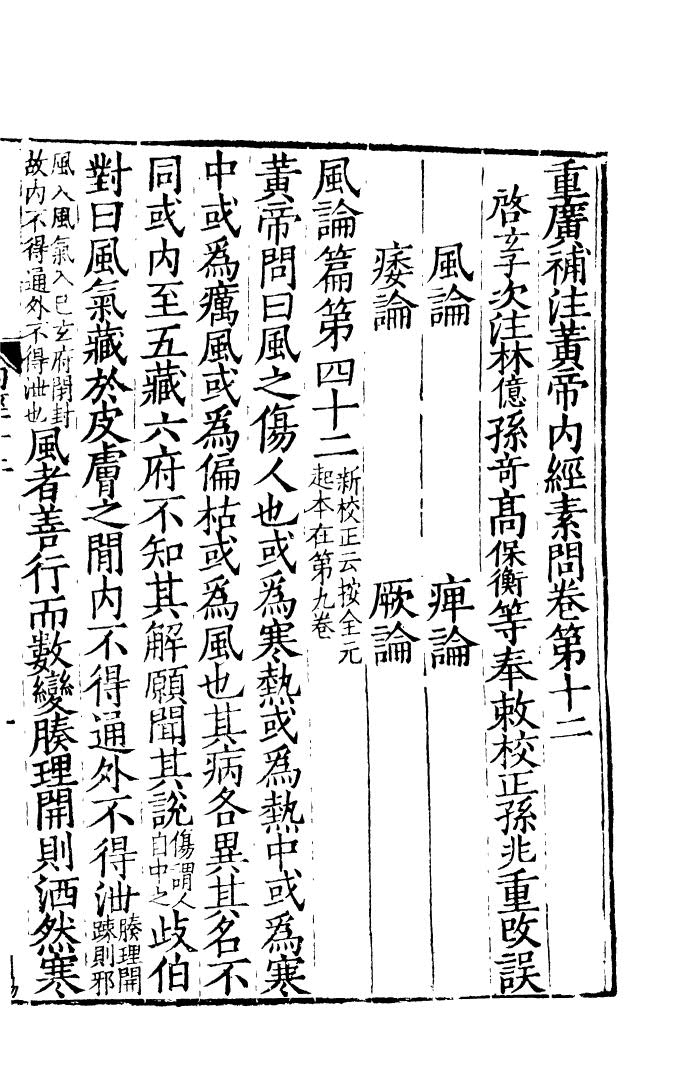 重廣補注黃帝內經素問卷第十二
啓玄子次注林億孫奇高保衡等奉敕校正孫兆重改誤
風論　痺論
痿論　厥論
風論篇第四十二新校正云按全元起本在第九卷
黃帝問曰風之傷人也或爲寒熱或爲熱中或爲寒
中或爲癘風或爲偏枯或爲風也其病各異其名不
同或內至五藏六府不知其解願聞其說傷謂人自中之歧伯
對曰風氣藏於皮膚之閒內不得通外不得泄腠理開踈則邪
風入風氣入已玄府閉封故內不得通外不得泄也風者善行而數變腠理開則洒然寒